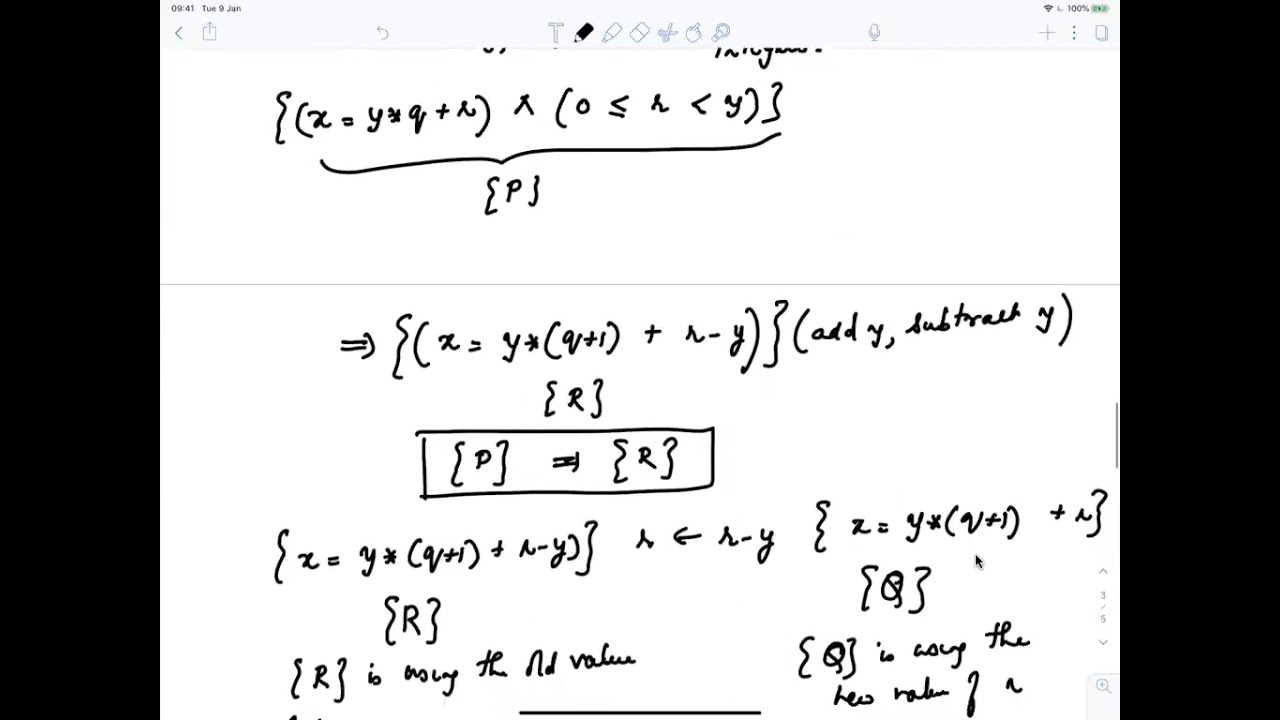 09:41 Tue 9 Jan
100%
{(x = y*q + r) ∧ (0 ≤ r < y)}
{P}
⇒ {(x = y*(q+1) + r-y)} (add y, subtract y)
{R}
{P} ⇒ {R}
{x = y*(q+1) + r-y)} r ← r-y {x = y*(q+1) + r}
{R} {Q}
{R} is using the old value {Q} is using the
new value of r
3
/
5